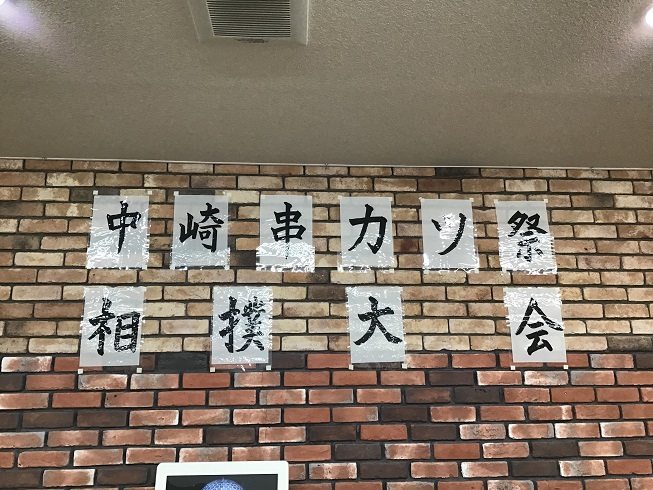 中崎串カツ祭
相撲大会